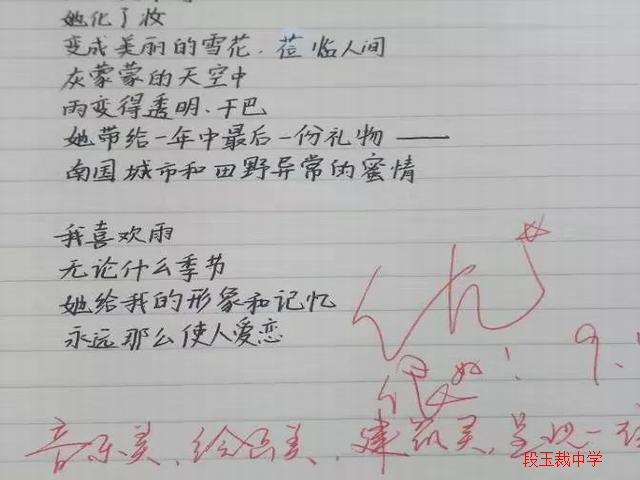 她化了妆
变成美丽的雪花.莅临人间
灰蒙蒙的天空中
雨变得透明、干巴
她带给一年中最后一份礼物——
南国城市和田野异常的蜜情
我喜欢雨
无论什么季节
她给我的形象和记忆
永远那么使人爱恋
优
很好! 9.
音乐美、绘画美、建筑美,呈现一
段玉裁中学